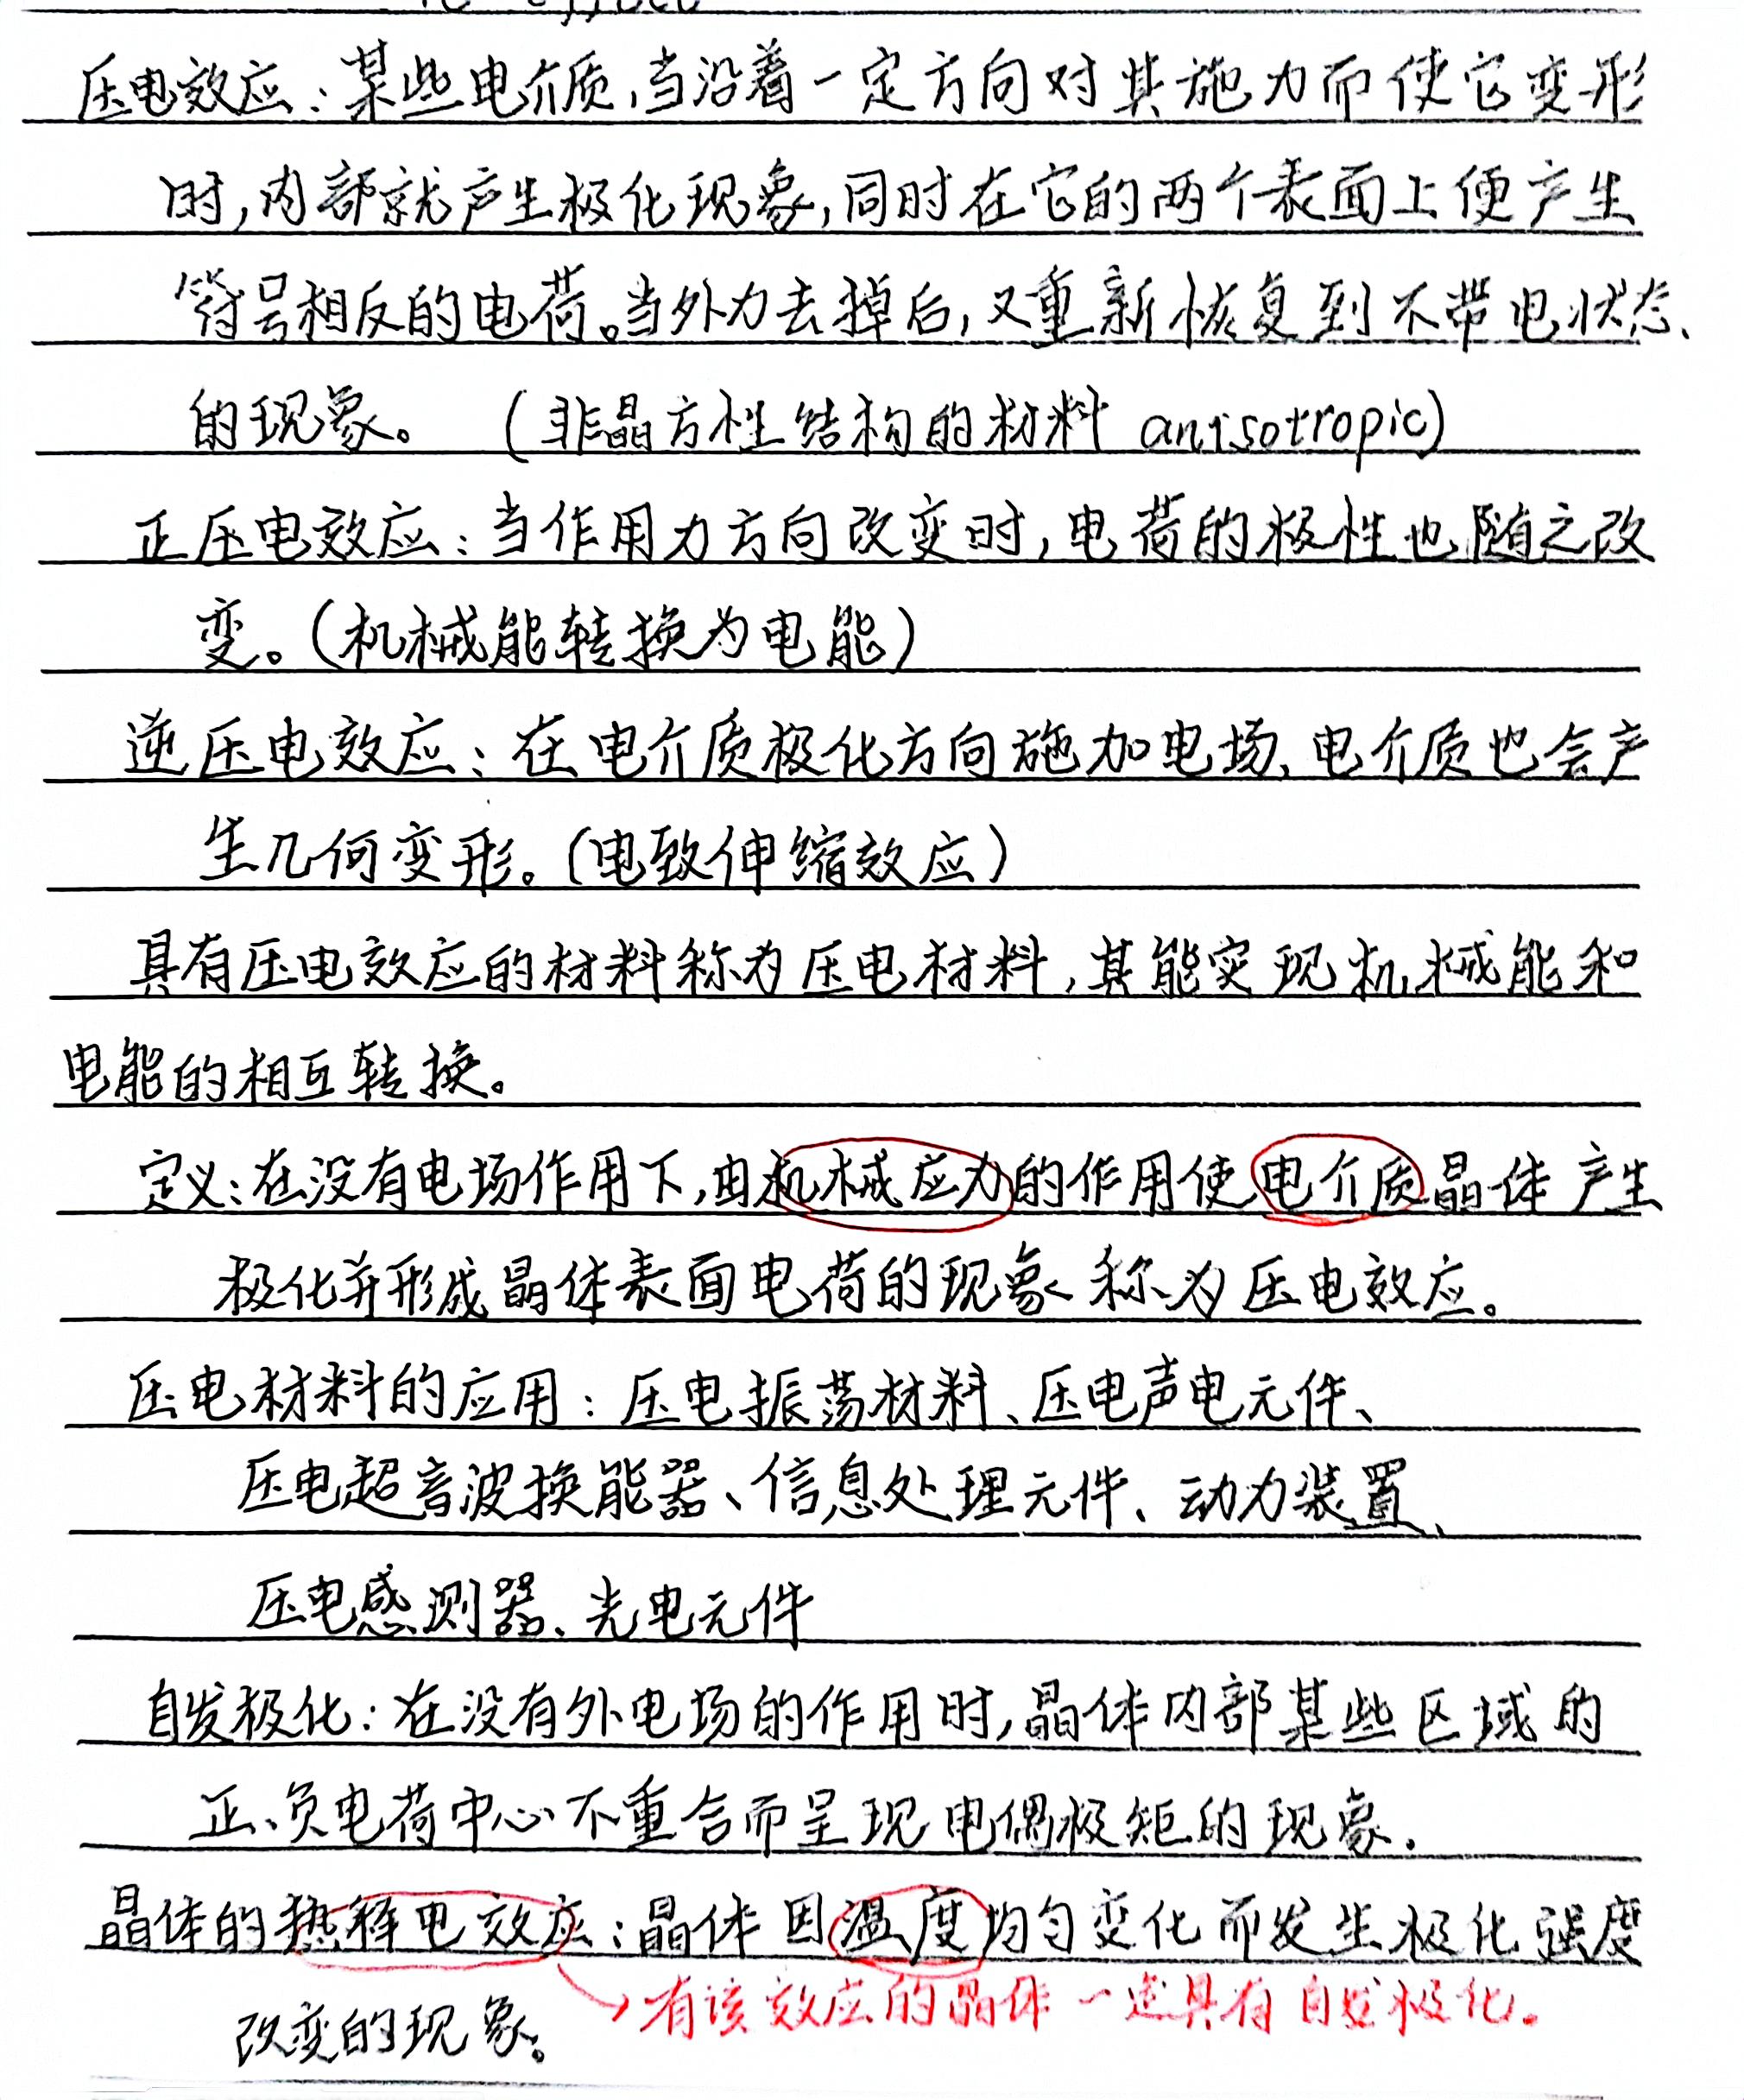 压电效应：某些电介质，当沿着一定方向对其施力而使它变形
时，内部就产生极化现象，同时在它的两个表面上便产生
符号相反的电荷。当外力去掉后，又重新恢复到不带电状态、
的现象。 （非晶方性结构的材料 anisotropic）
正压电效应：当作用力方向改变时，电荷的极性也随之改
变。（机械能转换为电能）
逆压电效应：在电介质极化方向施加电场，电介质也会产
生几何变形。（电致伸缩效应）
具有压电效应的材料称为压电材料，其能实现机械能和
电能的相互转换。
定义：在没有电场作用下，由机械应力的作用使电介质晶体产生
极化并形成晶体表面电荷的现象称为压电效应。
压电材料的应用：压电振荡材料、压电声电元件、
压电超音波换能器、信息处理元件、动力装置、
压电感测器、光电元件
自发极化：在没有外电场的作用时，晶体内部某些区域的
正、负电荷中心不重合而呈现电偶极矩的现象．
晶体的热释电效应：晶体因温度均匀变化而发生极化强度
改变的现象。
→有该效应的晶体一定具有自发极化．